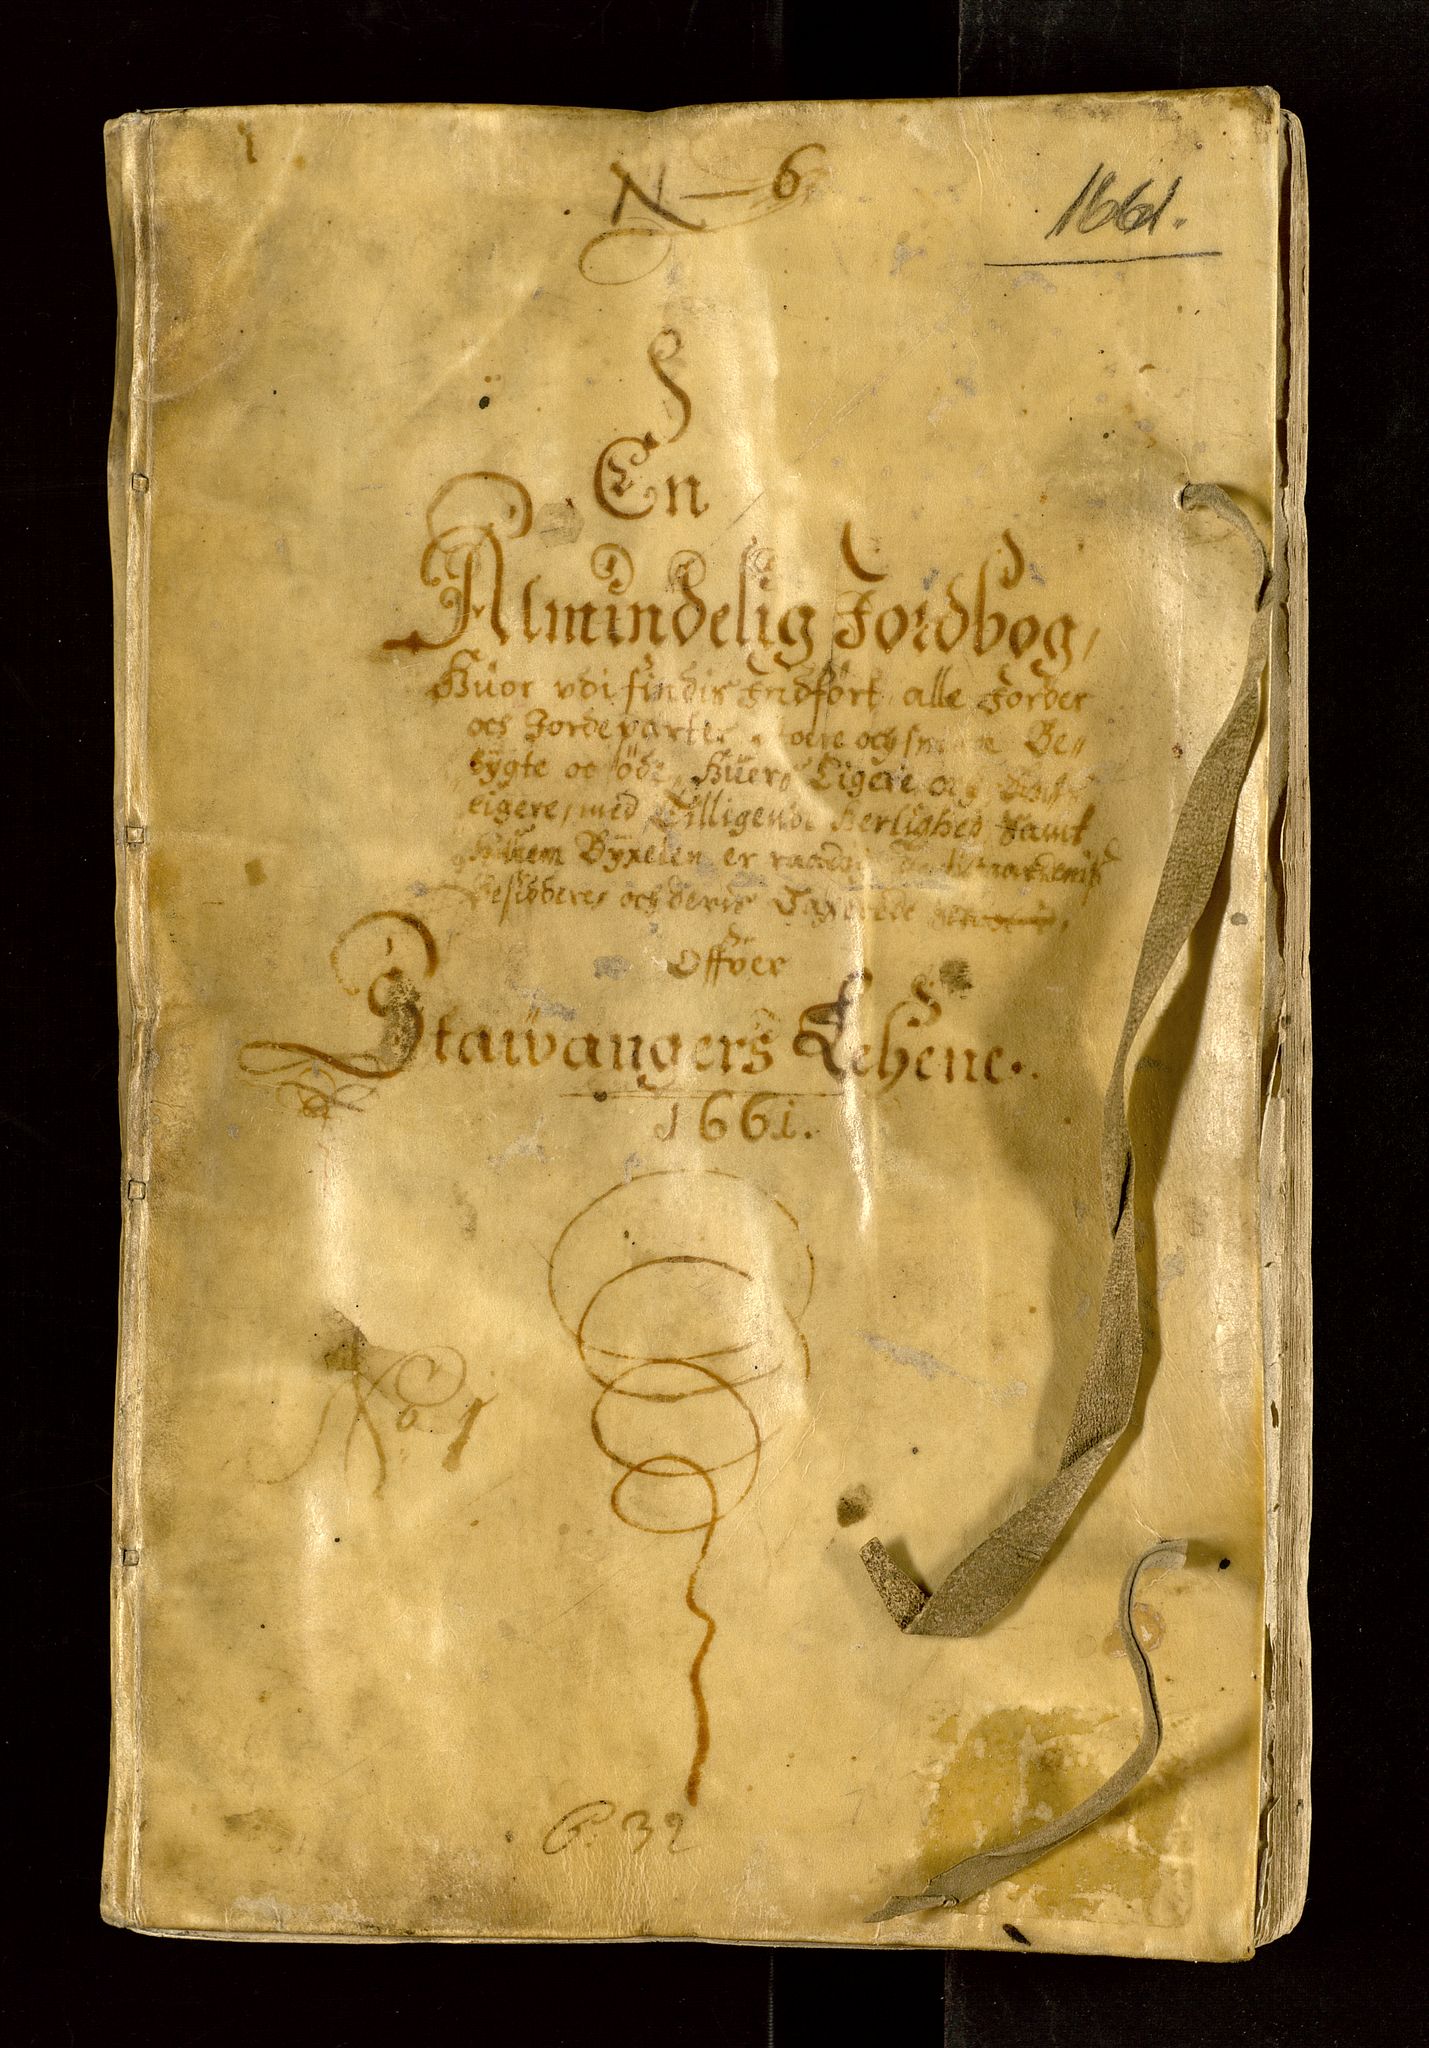 N — 6
1661.
En
Almindelig Jordbog,
Huor udi findis Indført, alle Jorder
och Jordeparter, store och smaa Be-
bygte oc øde, Huers Eigere och
eigere, med Tilligende Herlighed, samt
Huem Byxelen er raadig
Besiddere, och deris Taxerede
Offver
Stawangers Lehene.
1661.
No. 1
P. 32